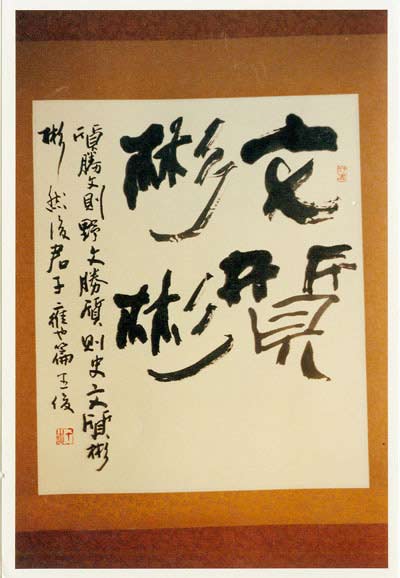 文質
彬彬
質勝文則野文勝質則史文質彬
彬然後君子雍也篇王俊